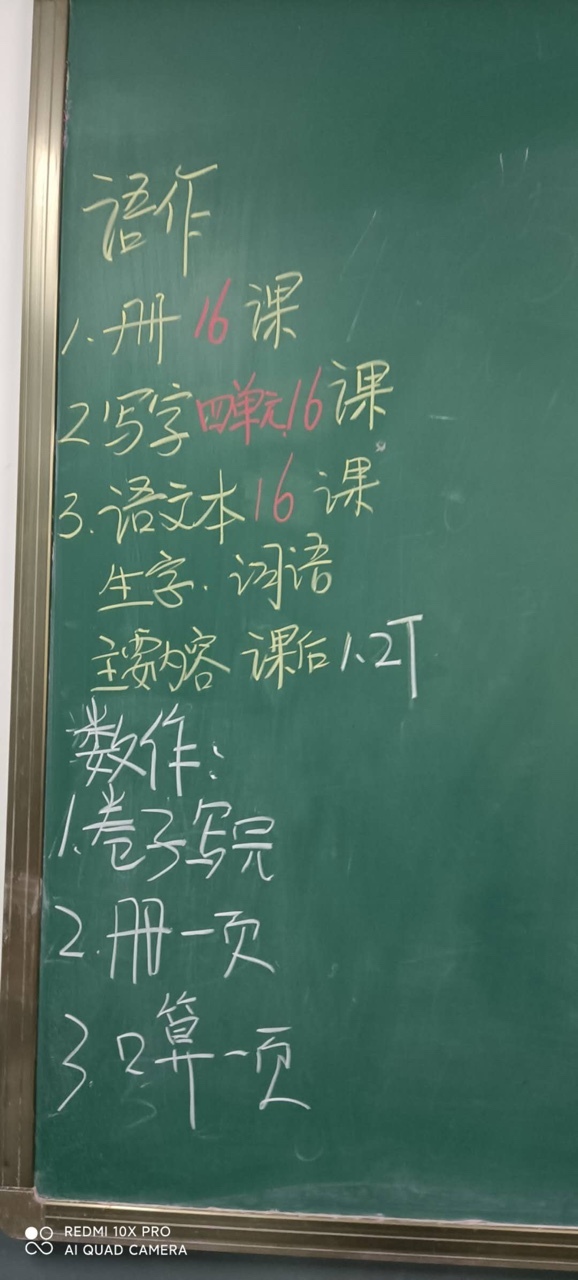 语作
1.册16课
2.写字四单元16课
3.语文本16课
生字.词语
主要内容 课后1.2T
数作:
1.卷子写完
2.册一页
3.口算一页
REDMI 10X PRO
AI QUAD CAMERA